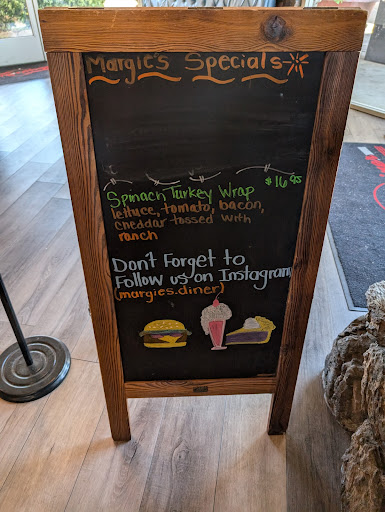 Margie's Specials
Spinach Turkey Wrap $16.95
lettuce, tomato, bacon,
cheddar tossed with
ranch
Don't Forget to
Follow us on Instagram
(margies.diner)